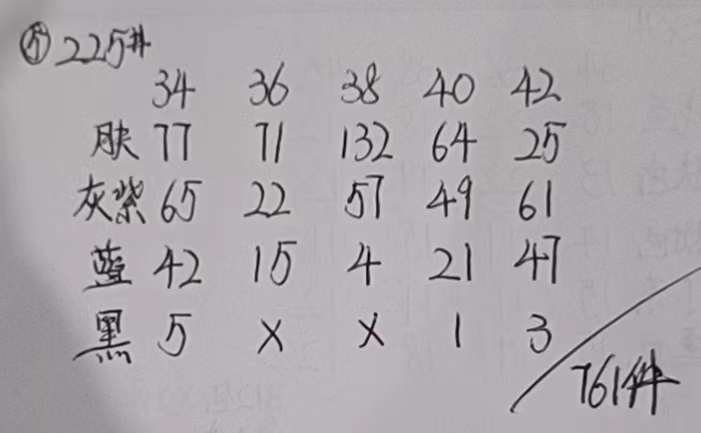 ⑤225#
34 36 38 40 42
肤 77 71 132 64 25
灰紫 65 22 57 49 61
蓝 42 15 4 21 47
黑 5 × × 1 3
761件